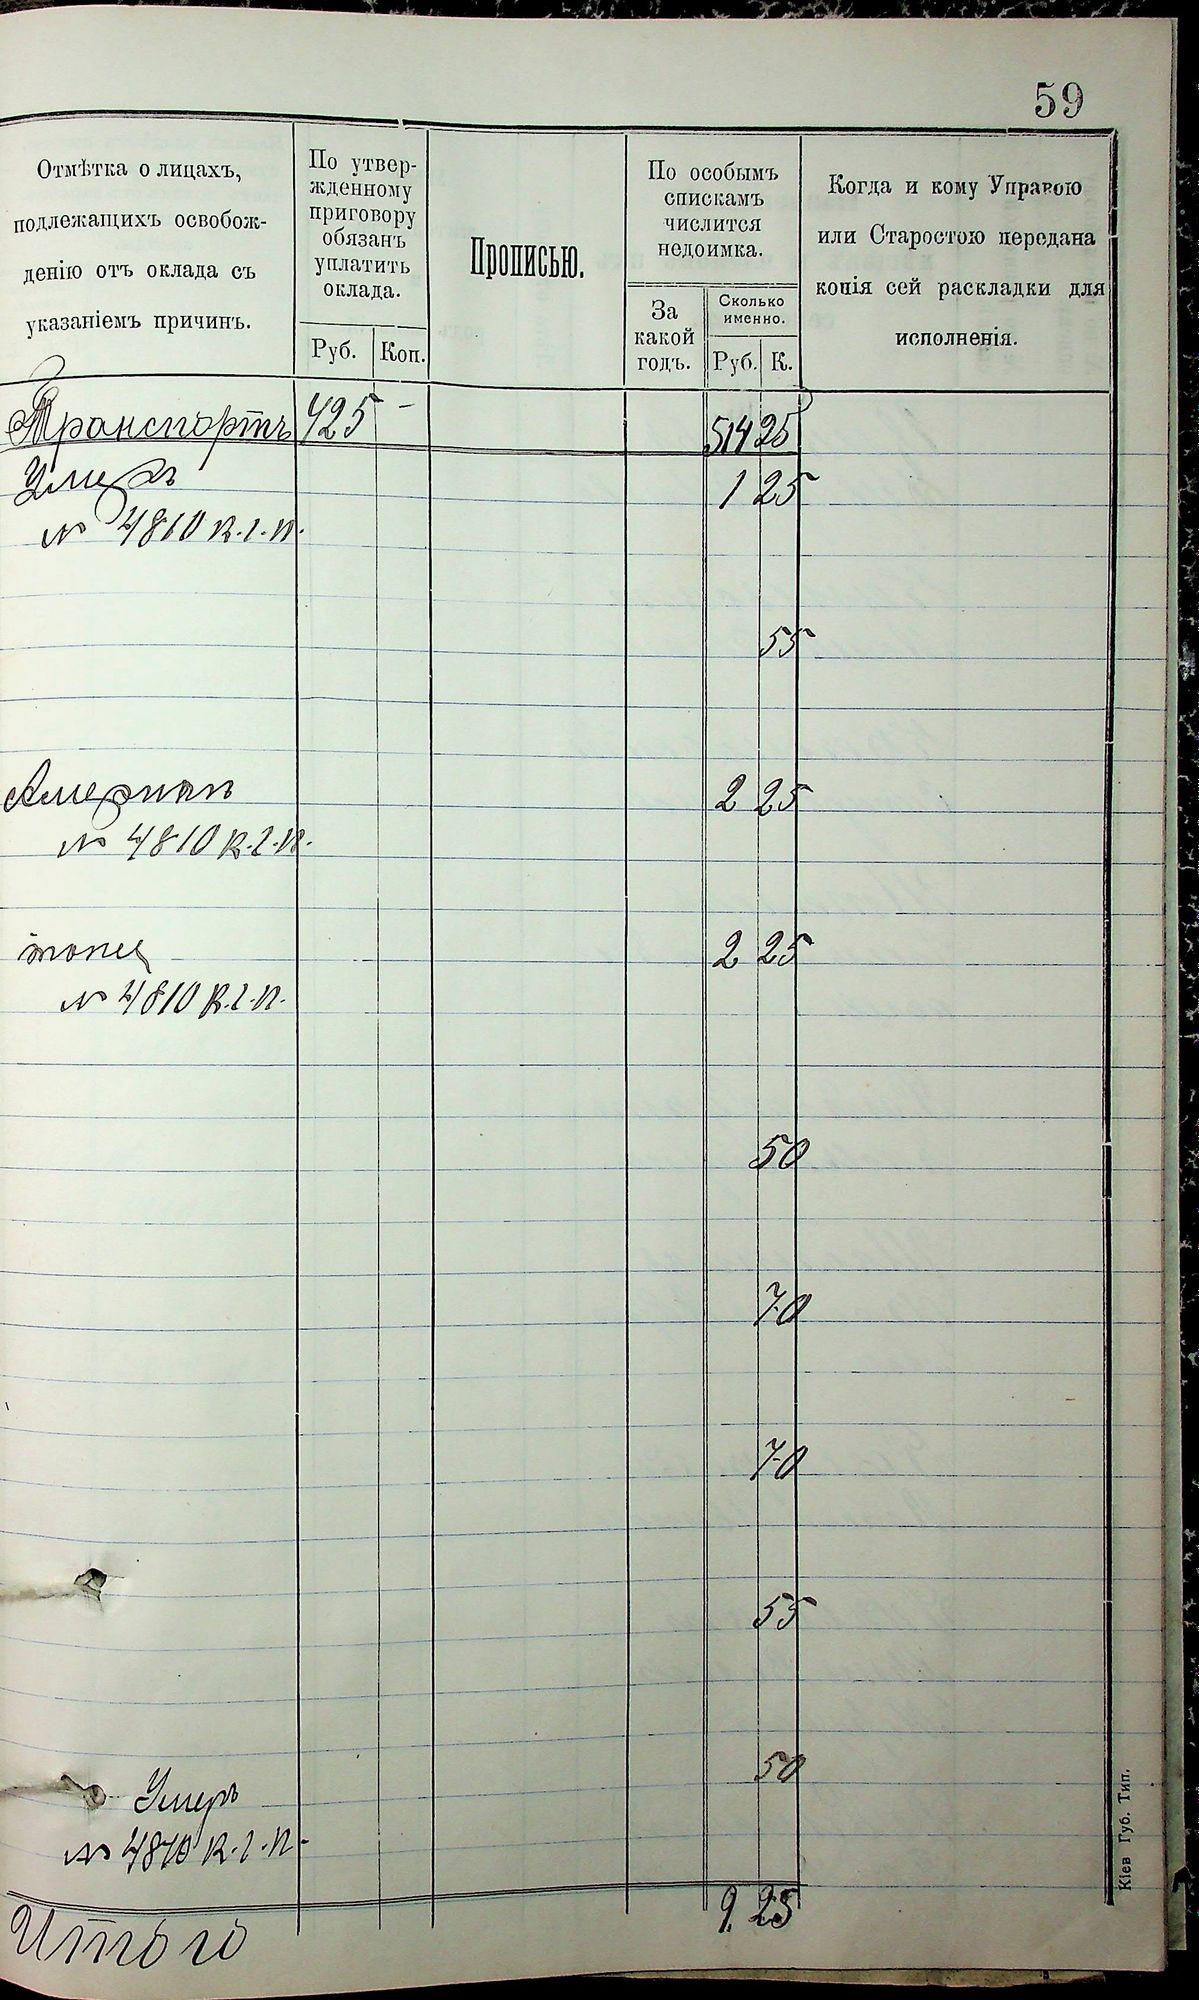 59
Отмѣтка о лицахъ,
подлежащихъ освобож-
денію отъ оклада съ
указаніемъ причинъ.
По утвер-
жденному
приговору
обязанъ
уплатить
оклада.
Руб.
Коп.
Прописью.
По особымъ
спискамъ
числится
недоимка.
За
какой
годъ.
Сколько
именно.
Руб.
К.
Когда и кому Управою
или Старостою передана
копія сей раскладки для
исполненія.
Транспортъ 425 - 514 25
Умеръ 1 25
№ 4810 К.Г.П.
55
2 25
№ 4810 К.Г.П.
2 25
№ 4810 К.Г.П.
50
70
70
55
50
Умеръ
№ 4810 К.Г.П.
Итого 9 25
Кіев Губ. Тип.